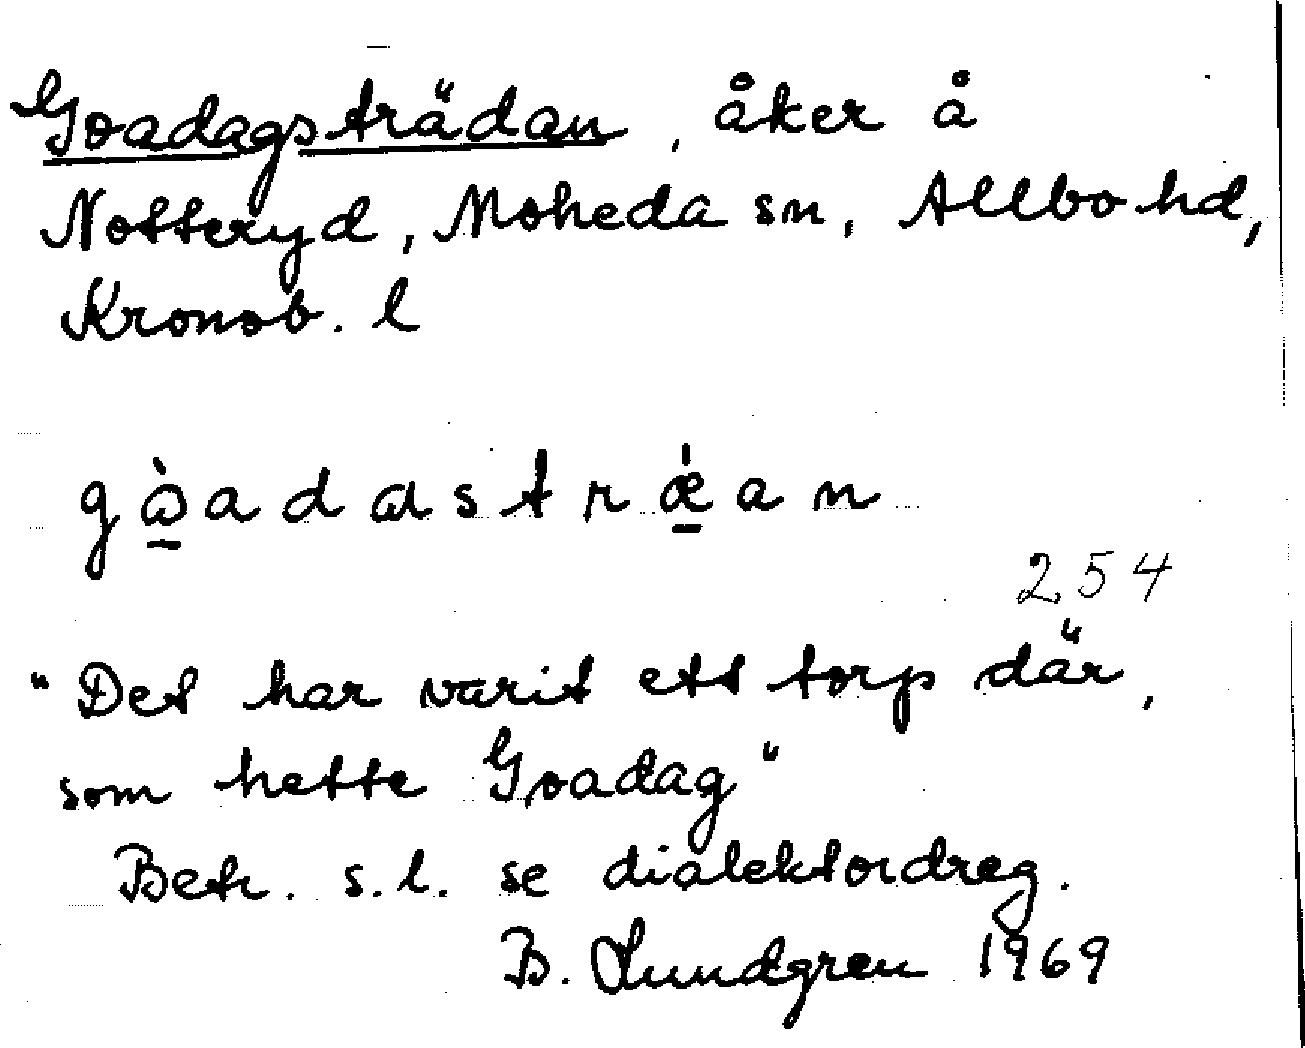 Goadagsträdan, åker å
Notteryd, Moheda sn, Allbo hd,
Kronob. l
gὼadɑstrǽan
254
"Det har varit ett torp där,
som hette Goadag"
Betr. s.l. se dialektordreg.
B. Lundgren 1969